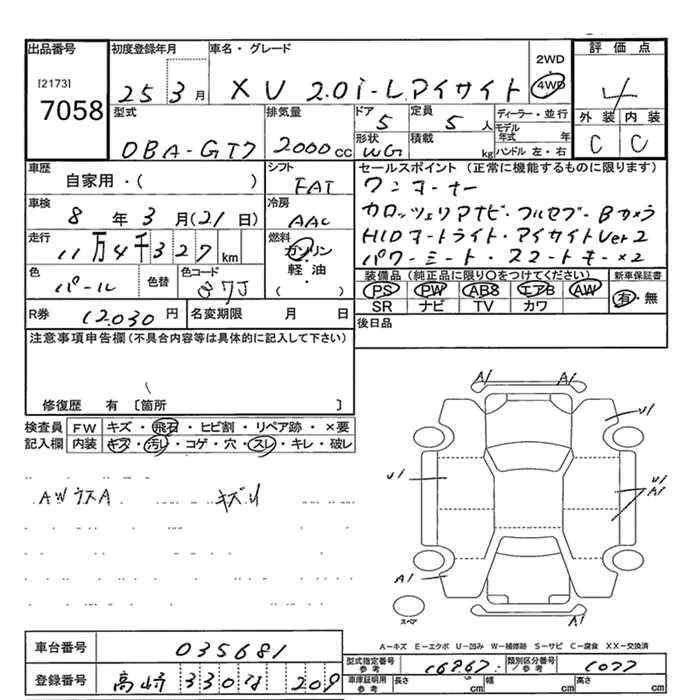 出品番号 初度登録年月 車名・グレード 評価点
[2173] 7058 25 3月 XV 2.0i-Lアイサイト 2WD 4WD 4
型式 排気量 ドア 定員 ディーラー・並行 外装 内装
DBA-GT7 2000cc 5 5人 モデル年式 年 C C
形状 積載 ハンドル 左・右
WG kg
車歴 シフト セールスポイント (正常に機能するものに限ります)
自家用・( ) FAT ワンオーナー
車検 冷房 カロッツェリアナビ・フルセグ・Bカメラ
8年3月(21日) AAC HIDオートライト・アイサイトVer2
走行 燃料 パワーシート・スマートキー×2
11万4千327km ガソリン・軽油・( )
色 色替 色コード 装備品(純正品に限り○をつけてください) 新車保証書
パール 37J PS PW ABS エアB AW 有・無
SR ナビ TV カワ
R券 12,030円 名変期限 月 日 後日品
注意事項申告欄(不具合内容等は具体的に記入して下さい)
修復歴 有 [箇所 ]
検査員 FW キズ・飛石・ヒビ割・リペア跡・×要
記入欄 内装 キズ・汚レ・コゲ・穴・スレ・キレ・破レ
AWウスA キズU
A1 A1
U1
U1 U1
A1
A1
A1
スペア
A-キズ E-エクボ U-凹み W-補修跡 S-サビ C-腐食 XX-交換済
車台番号 035681
型式指定番号 参考 16867 類別区分番号 参考 1077
登録番号 高崎 330 な 209
車庫証明用 参考 長さ cm 幅 cm 高さ cm